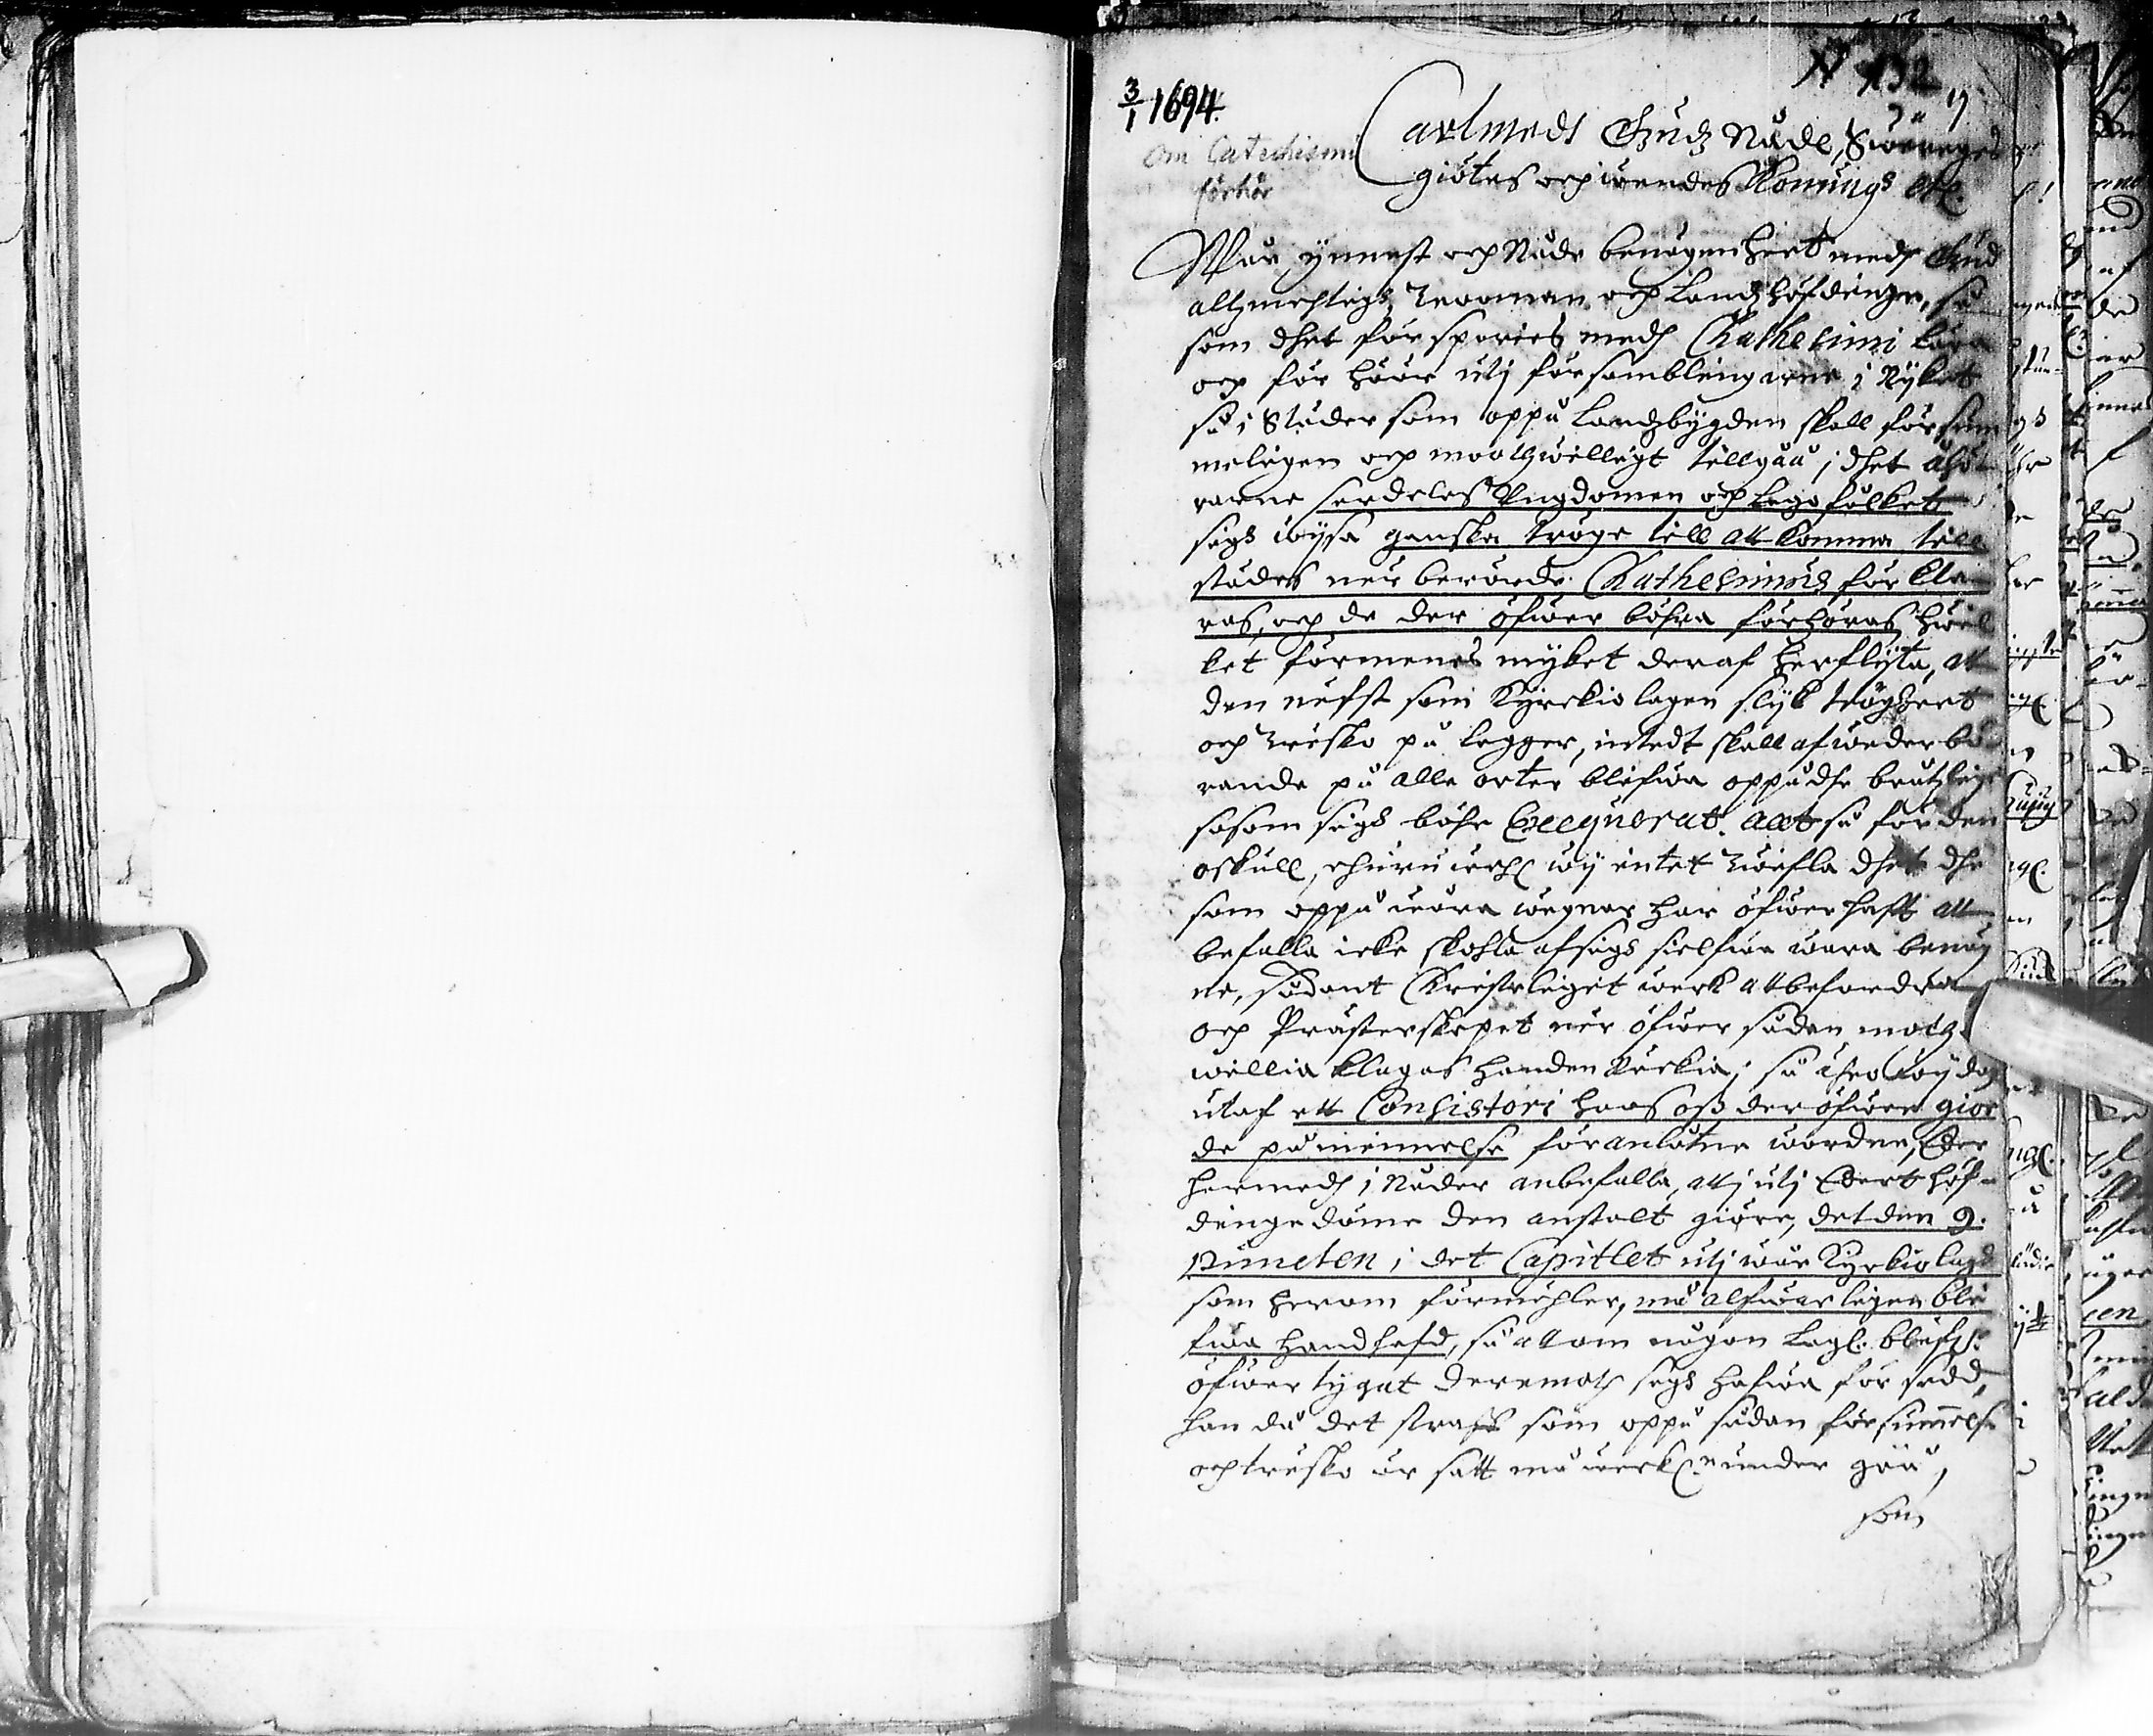 N 132
3/1 1694.
Om Catechismi
förhör
Carl medh Gudz Nåde, Swerges
giötes och wendes Konungh etc.
Wår ynnest och Nåde benägenheet medh Gud
alzmechtigh, Trooman och Landzhöfdinge, så
som dhet förspories medh Cathesimi lära
och förhöör utj församblingarne i Rijket
så i Städer som oppå Landzbygden skall försum
meligen och mootzwilligt tillgåå, i dhet åhö
rarne serdeles Ungdomen och Lego folket
sigh wijsa ganska tröge till att komma till
städes när berörde Cathesimus förkla
ras, och de der öfwer böhra förhöras, hwil
ket förmenes myket deraf herflyta, att
den näpst som Kyrckio lagen slijk trögheet
och tresko på legger, intedt skall af wederbö
rande på alla orter blifwa oppå dhe brutzlige
såsom sigh böhr Execquerat. Alt så för den
skull, ehuruwehl wij intet twifla dhet dhe
som oppå wåra wegnar har öfwer haft att
befalla icke skohla af sigh sielfwa wara benäg
ne, sådant Christeligit werk att befordra
och Prästerskapet när öfwer sådan motz
willia klagas handen räckia, så äre wij dog
utaf ett Consistorj hoos oss der öfwer gior
de påminnelse föranlåtne wordne, Eder
hermedh i Nåder anbefalla, att j utj Edert höf-
dingedöme den anstalt giöre, det den 9.
Puncten i det Capitlet utj wår Kyrkiolagh
som herom förmähler, må alfwarligen bli
fwa handhafd, så att om någon Lagl. blifr.
öfwertygat deremoth sigh hafwa försedd,
han då det straff som oppå sådan försummelse
och tresko är satt må werkl.n undergåå,
som